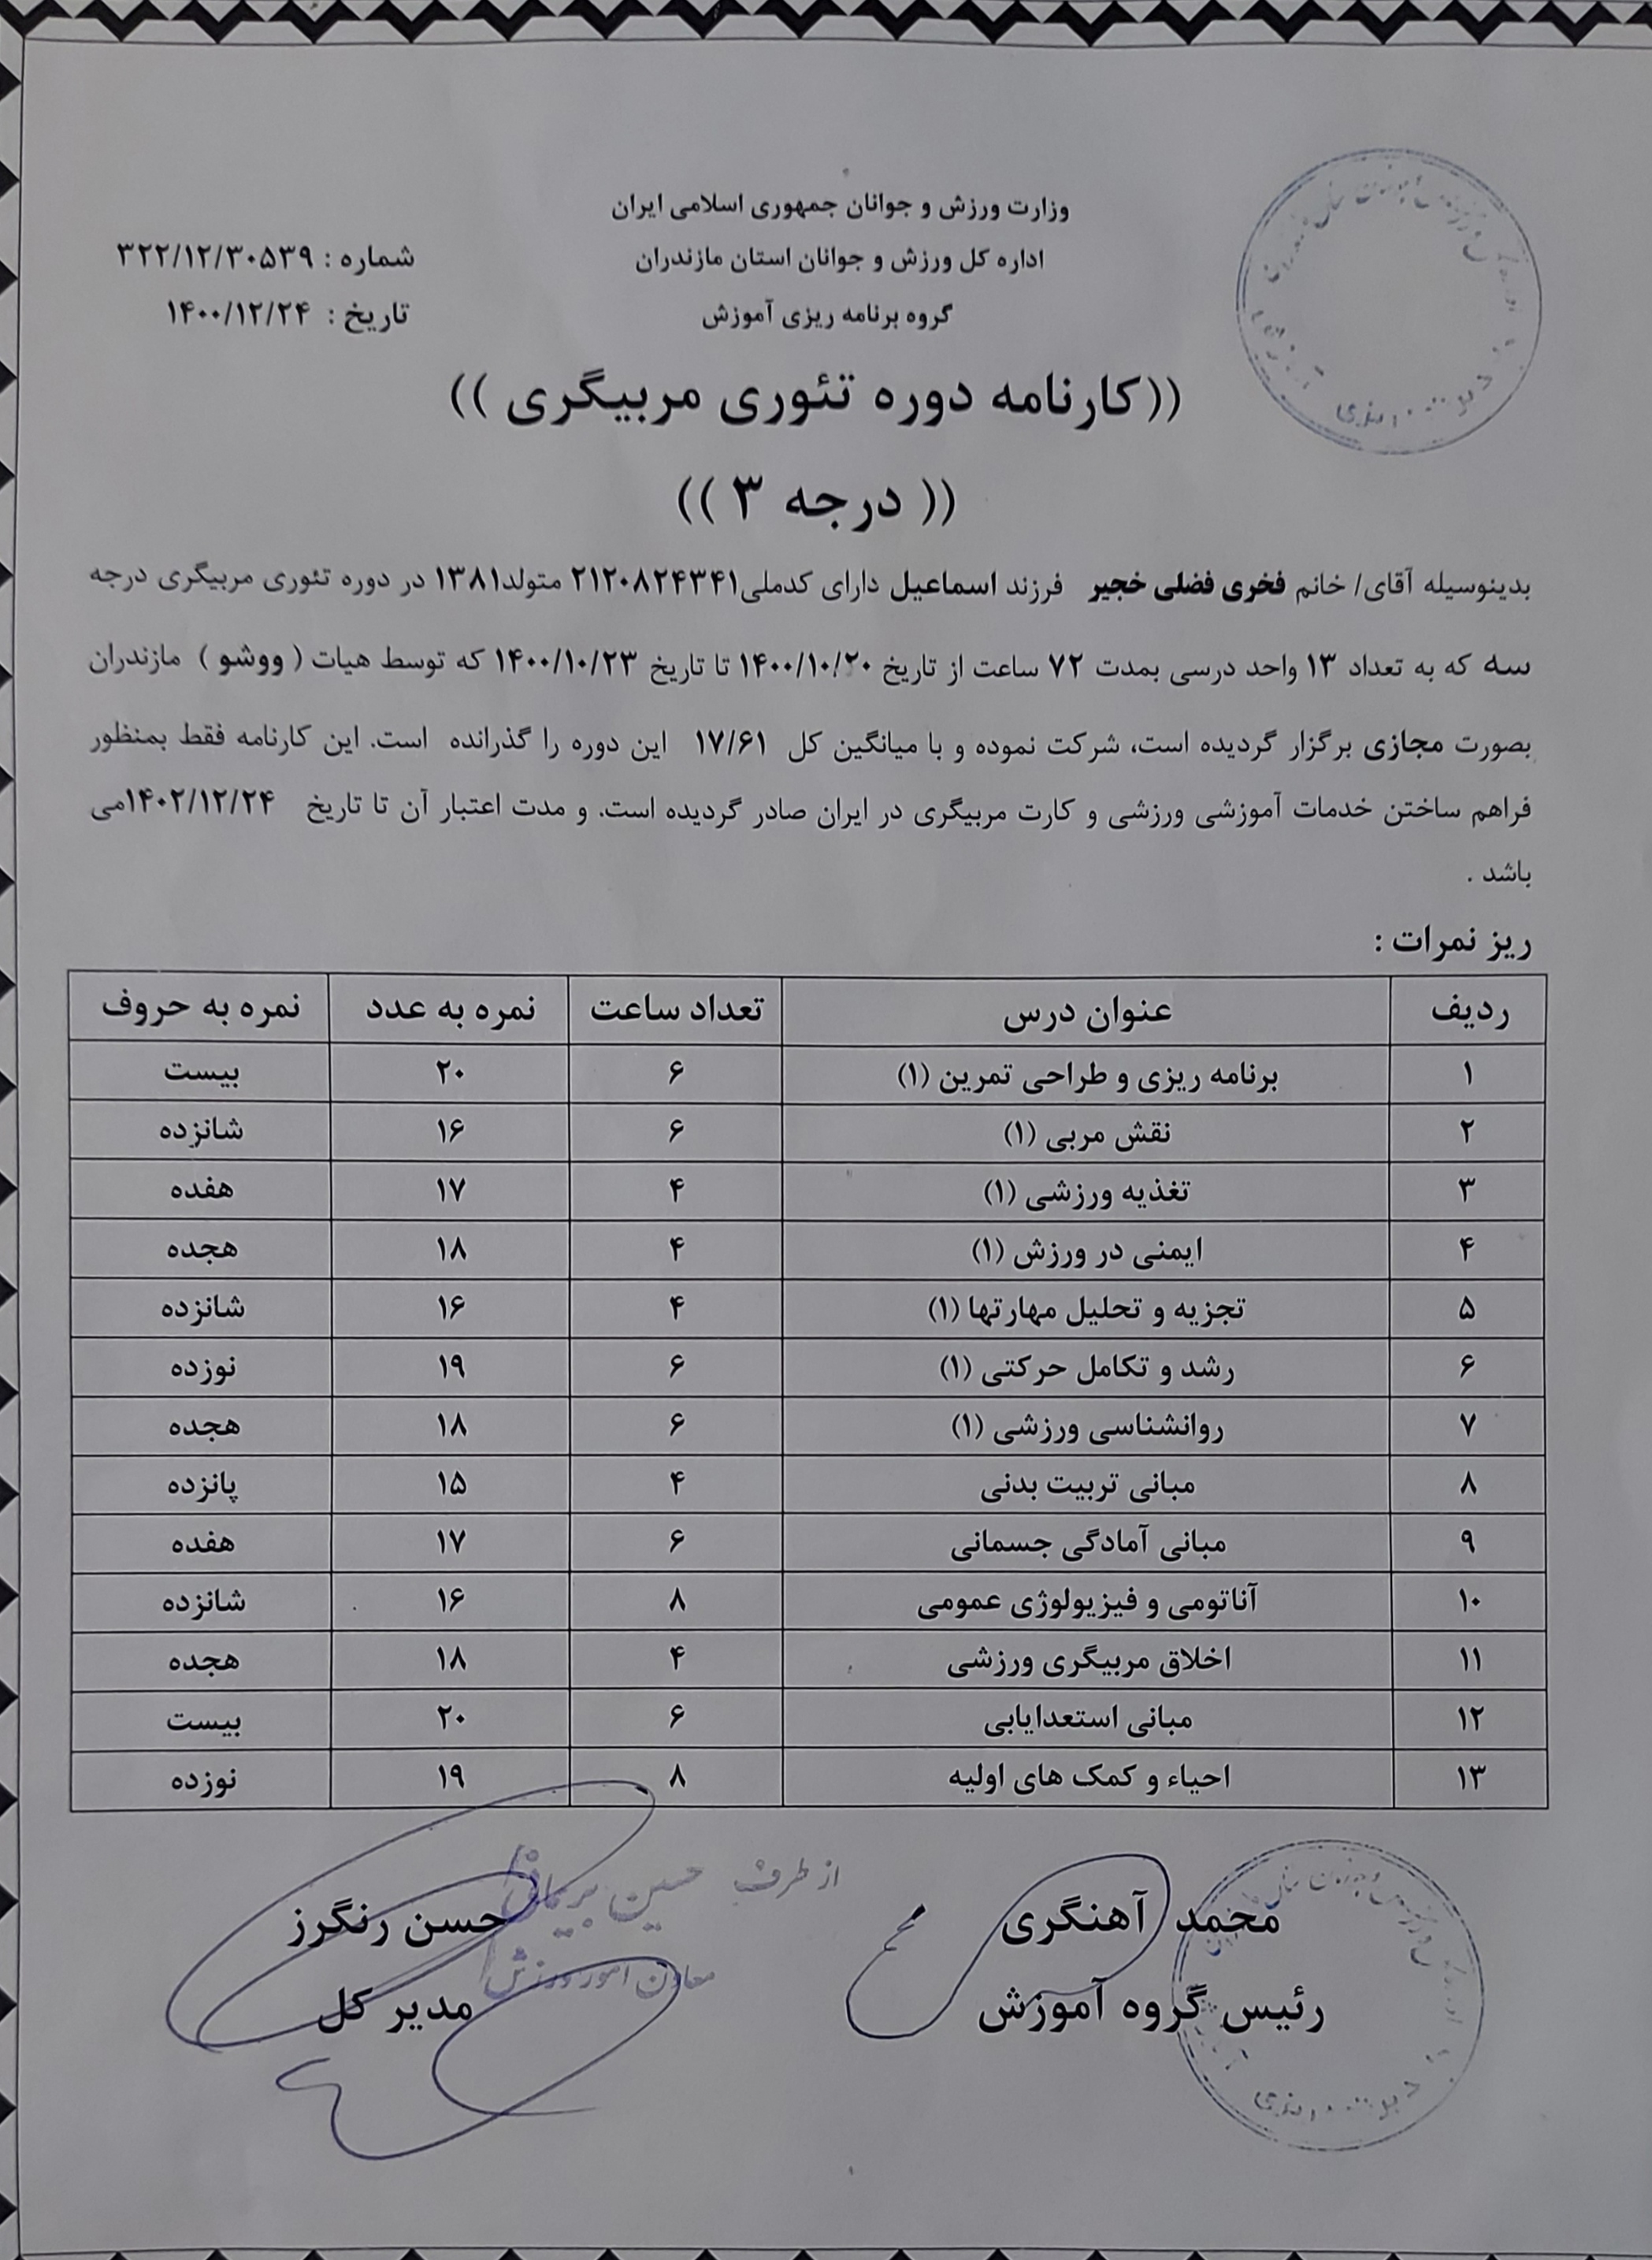 وزارت ورزش و جوانان جمهوری اسلامی ایران
اداره کل ورزش و جوانان استان مازندران
گروه برنامه ریزی آموزش
شماره : ۳۲۲/۱۲/۳۰۵۳۹
تاریخ : ۱۴۰۰/۱۲/۲۴
((کارنامه دوره تئوری مربیگری ))
(( درجه ۳ ))
بدینوسیله آقای/ خانم فخری فضلی خجیر فرزند اسماعیل دارای کدملی۲۱۲۰۸۲۴۳۴۱ متولد۱۳۸۱ در دوره تئوری مربیگری درجه
سه که به تعداد ۱۳ واحد درسی بمدت ۷۲ ساعت از تاریخ ۱۴۰۰/۱۰/۲۰ تا تاریخ ۱۴۰۰/۱۰/۲۳ که توسط هیات ( ووشو ) مازندران
بصورت مجازی برگزار گردیده است، شرکت نموده و با میانگین کل ۱۷/۶۱ این دوره را گذرانده است. این کارنامه فقط بمنظور
فراهم ساختن خدمات آموزشی ورزشی و کارت مربیگری در ایران صادر گردیده است. و مدت اعتبار آن تا تاریخ ۱۴۰۲/۱۲/۲۴می
باشد .
ریز نمرات :
ردیف عنوان درس تعداد ساعت نمره به عدد نمره به حروف
۱ برنامه ریزی و طراحی تمرین (۱) ۶ ۲۰ بیست
۲ نقش مربی (۱) ۶ ۱۶ شانزده
۳ تغذیه ورزشی (۱) ۴ ۱۷ هفده
۴ ایمنی در ورزش (۱) ۴ ۱۸ هجده
۵ تجزیه و تحلیل مهارتها (۱) ۴ ۱۶ شانزده
۶ رشد و تکامل حرکتی (۱) ۶ ۱۹ نوزده
۷ روانشناسی ورزشی (۱) ۶ ۱۸ هجده
۸ مبانی تربیت بدنی ۴ ۱۵ پانزده
۹ مبانی آمادگی جسمانی ۶ ۱۷ هفده
۱۰ آناتومی و فیزیولوژی عمومی ۸ ۱۶ شانزده
۱۱ اخلاق مربیگری ورزشی ۴ ۱۸ هجده
۱۲ مبانی استعدایابی ۶ ۲۰ بیست
۱۳ احیاء و کمک های اولیه ۸ ۱۹ نوزده
از طرف حسین
معاون امور ورزش
محمد آهنگری
رئیس گروه آموزش
حسن رنگرز
مدیر کل